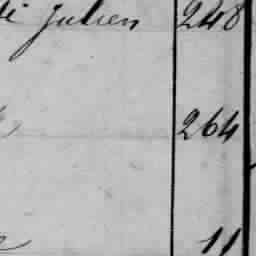 Julien 248
264
11